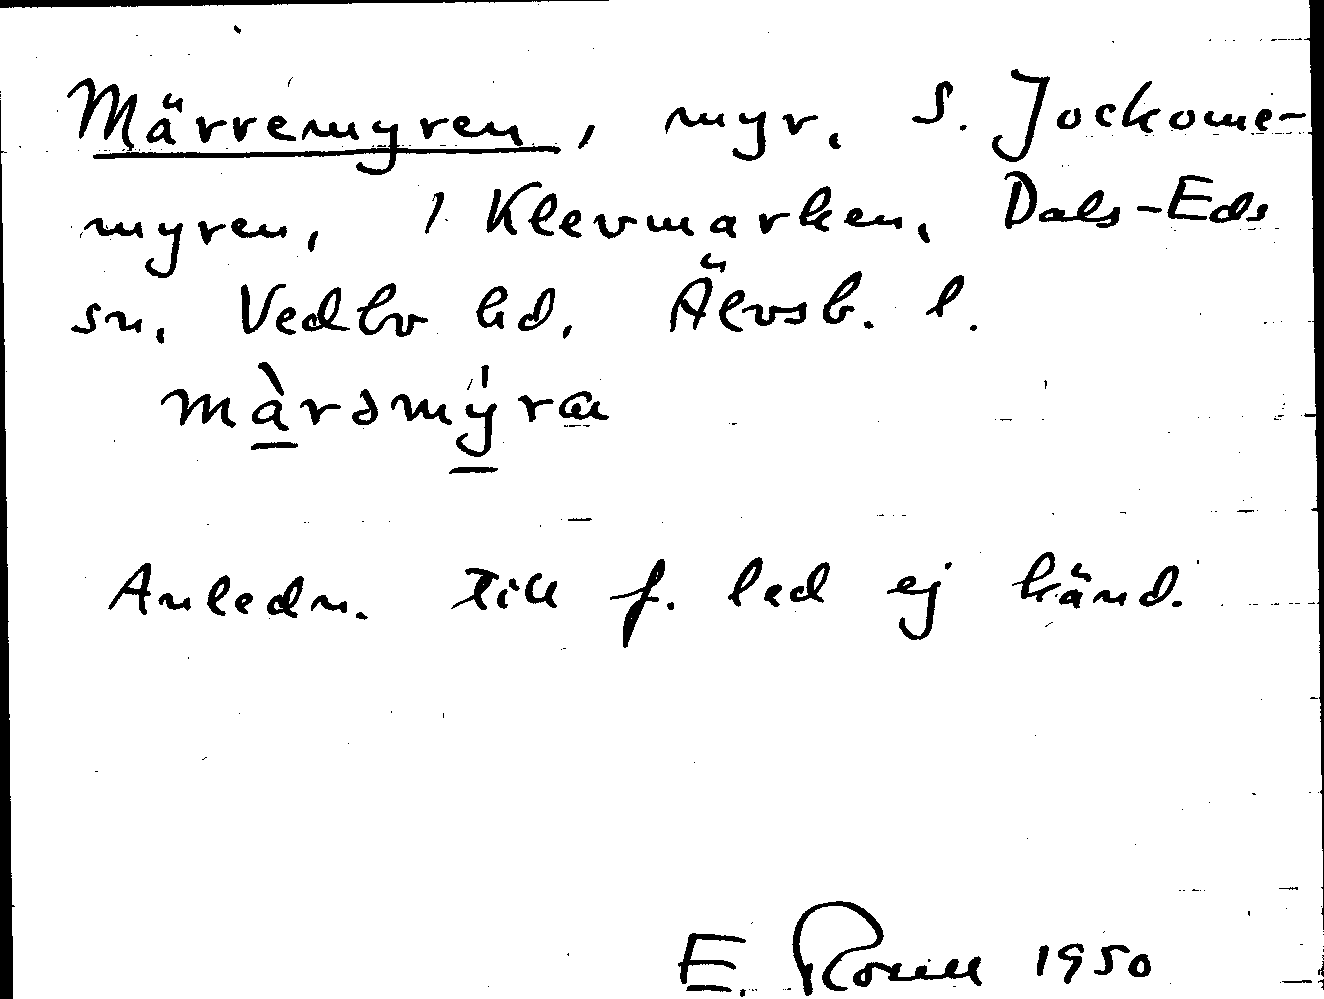 Märremyren, myr, S. Jockome-
myren, i Klevmarken, Dals-Eds
sn, Vedbo hd, Älvsb. l.
màrəmýra
Anledn. till f. led ej känd.
E. 1950